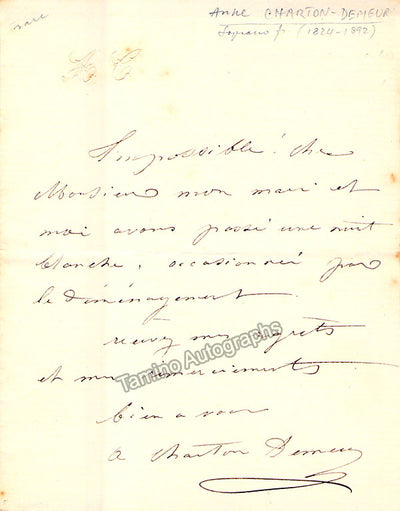 rare
Anne CHARTON-DEMEUR
Soprano fr (1824-1892)
A C
Impossible! cher
Monsieur mon mari et
moi avons passé une nuit
blanche, occasionnée par
le déménagement
recevez mes regrets
et mes remerciements
bien a vous
A Charton Demeur
Tamino Autographs